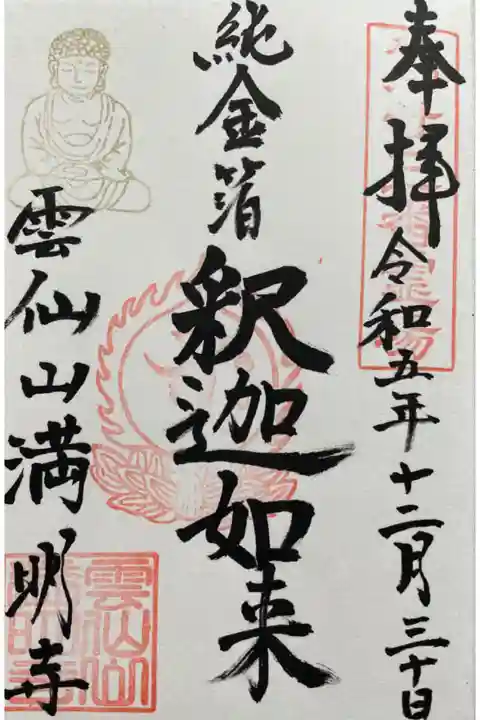 奉拝
令和五年十二月三十日
純金箔
釈迦如来
雲仙山満明寺
雲仙山
満明寺